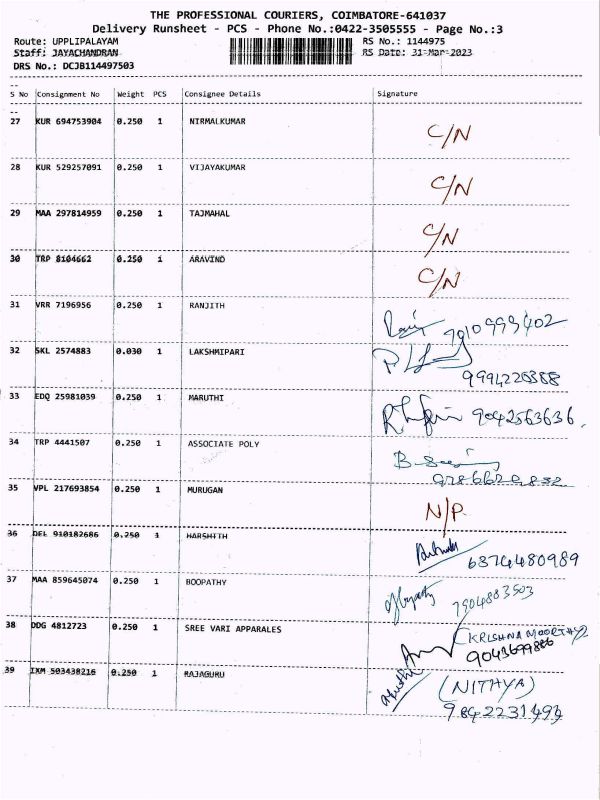 THE PROFESSIONAL COURIERS, COIMBATORE-641037
Delivery Runsheet - PCS - Phone No.:0422-3505555 - Page No.:3
Route: UPPLIPALAYAM RS No.: 1144975
Staff: JAYACHANDRAN RS Date: 31-Mar-2023
DRS No.: DCJB114497503
--
S No Consignment No Weight PCS Consignee Details Signature
--
27 KUR 694753904 0.250 1 NIRMALKUMAR C/N
28 KUR 529257091 0.250 1 VIJAYAKUMAR C/N
29 MAA 297814959 0.250 1 TAJMAHAL C/N
30 TRP 8104662 0.250 1 ARAVIND C/N
31 VRR 7196956 0.250 1 RANJITH 7010999402
32 SKL 2574883 0.030 1 LAKSHMIPARI 9994220388
33 EDQ 25981039 0.250 1 MARUTHI 9042563636
34 TRP 4441507 0.250 1 ASSOCIATE POLY
35 VPL 217693854 0.250 1 MURUGAN N/P
36 DEL 910182686 0.250 1 HARSHITH 6374480989
37 MAA 859645074 0.250 1 BOOPATHY 7904883503
38 DDG 4812723 0.250 1 SREE VARI APPARALES (KRISHNA MOORTHY)
9043699886
39 IXM 503438216 0.250 1 RAJAGURU (NITHYA)
9842231494